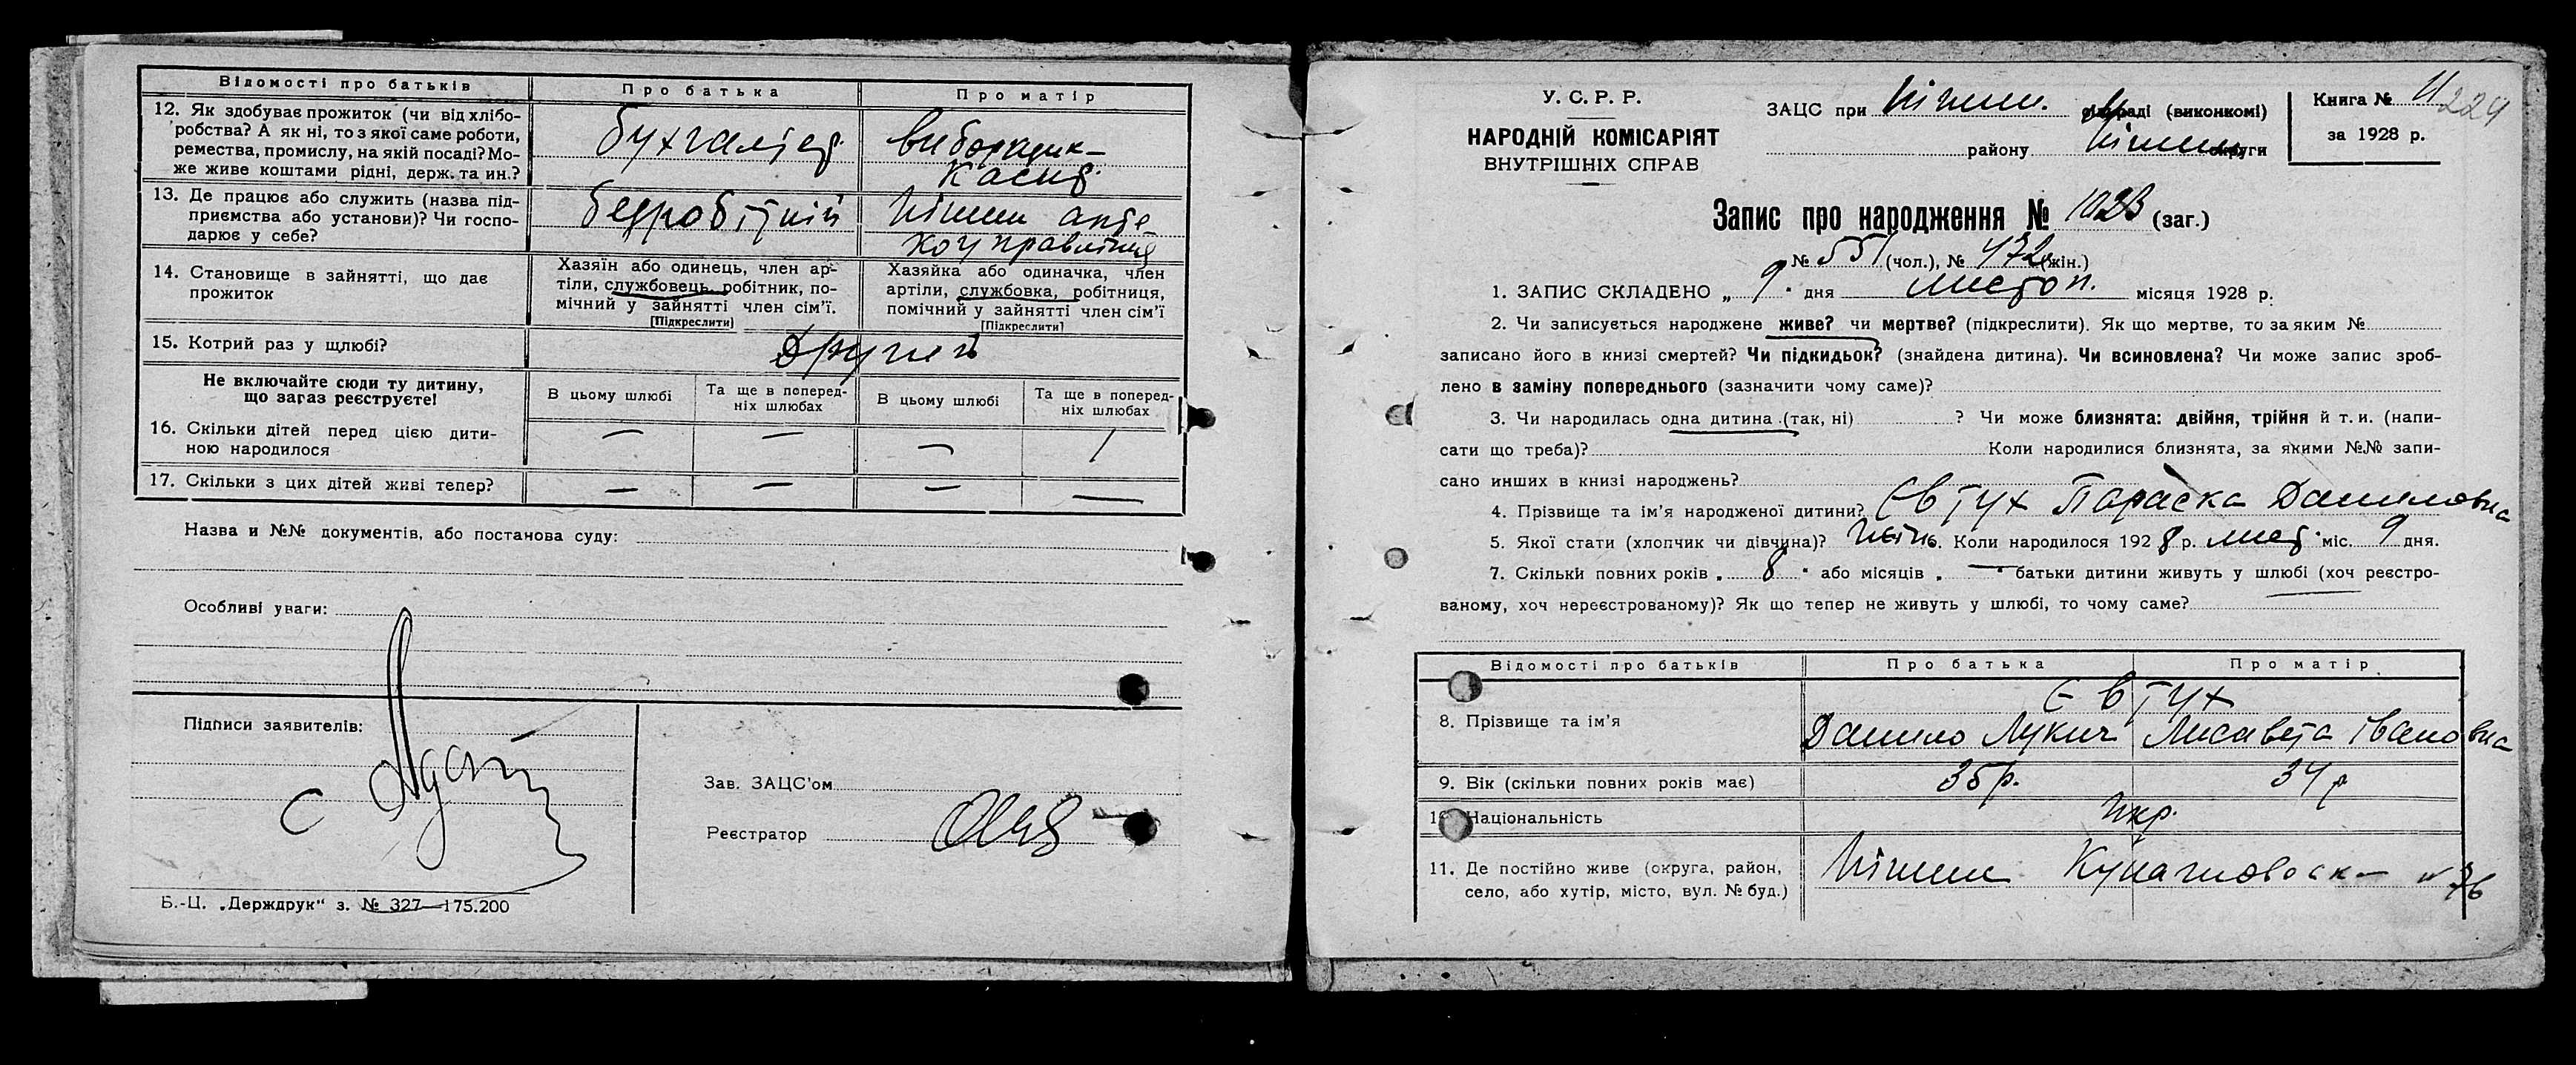 Відомості про батьків
Про батька
Про матір
12. Як здобуває прожиток (чи від хлібо-
робства? А як ні, то з якої саме роботи,
ремества, промислу, на якій посаді? Мо-
же живе коштами рідні, держ. та ин.?
бухгалтер
виборщик-
касир
13. Де працює або служить (назва під-
приємства або установи)? Чи госпо-
дарює у себе?
безробітний
Ніжин апте-
коуправління
14. Становище в зайнятті, що дає
прожиток
Хазяїн або одинець, член ар-
тілі, службовець, робітник, по-
мічний у зайнятті член сім'ї.
[Підкреслити]
Хазяйка або одиначка, член
артілі, службовка, робітниця,
помічний у зайнятті член сім'ї
[Підкреслити]
15. Котрий раз у щлюбі?
Другий
Не включайте сюди ту дитину,
що загаз реєструєте!
В цьому шлюбі
Та ще в поперед-
ніх шлюбах
В цьому шлюбі
Та ще в поперед-
ніх шлюбах
16. Скільки дітей перед цією дити-
ною народилося
— — — 1
17. Скільки з цих дітей живі тепер?
— — — —
Назва и №№ документів, або постанова суду:
Особливі уваги:
Підписи заявителів:
Зав. ЗАЦС'ом
Реєстратор
Б.-Ц. „Держдрук" з. № 327—175.200
У. С. Р. Р.
НАРОДНІЙ КОМІСАРІЯТ
ВНУТРІШНІХ СПРАВ
ЗАЦС при Ніжин. сільраді (виконкомі)
району Ніжин округи
Книга № 11
224
за 1928 р.
Запис про народження № 1023 (заг.)
№ 551 (чол.), № 472 (жін.)
1. ЗАПИС СКЛАДЕНО „ 9 " дня листоп. місяця 1928 р.
2. Чи записується народжене живе? чи мертве? (підкреслити). Як що мертве, то за яким №
записано його в книзі смертей? Чи підкидьок? (знайдена дитина). Чи всиновлена? Чи може запис зроб-
лено в заміну попереднього (зазначити чому саме)?
3. Чи народилась одна дитина (так, ні) ? Чи може близнята: двійня, трійня й т. и. (напи-
сати що треба)? Коли народилися близнята, за якими №№ запи-
сано инших в книзі народжень?
4. Прізвище та ім'я народженої дитини? Євтух Параска Даниловна
5. Якої стати (хлопчик чи дівчина)? жіноч. Коли народилося 1928 р. лист. міс. 9 дня.
7. Скільки повних років „ 8 " або місяців „ — " батьки дитини живуть у шлюбі (хоч реєстро-
ваному, хоч нереєстрованому)? Як що тепер не живуть у шлюбі, то чому саме?
Відомості про батьків
Про батька
Про матір
8. Прізвище та ім'я
Євтух
Данило Лукич
Лисавета Івановна
9. Вік (скільки повних років має)
35 р.
34 р
10. Національність
укр.
11. Де постійно живе (округа, район,
село, або хутір, місто, вул. № буд.)
Ніжин